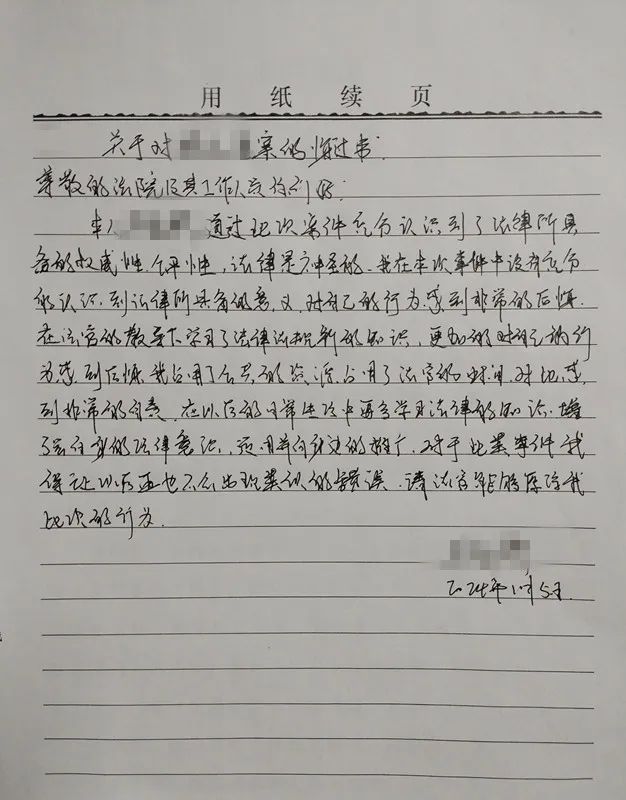 用纸续页
关于对 案的悔过书
尊敬的法院及其工作人员你们好:
本人 通过此次案件充分认识到了法律所具
备的权威性、公平性,法律是神圣的。我在本次事件中没有充分
的认识到法律所具备的意义,对自己的行为感到非常的后悔。
在法官的教导下学习了法律法规新的知识,更加的对自己的行
为感到后悔,我占用了公共的资源,占用了法官的时间,对此感
到非常的自责,在以后的日常生活中要多学习法律的知识,增
强自身的法律意识,并向身边的推广,对于此类事件我
保证以后再也不会出现类似的错误,请法官能够原谅我
此次的行为.
2024年11月5日.